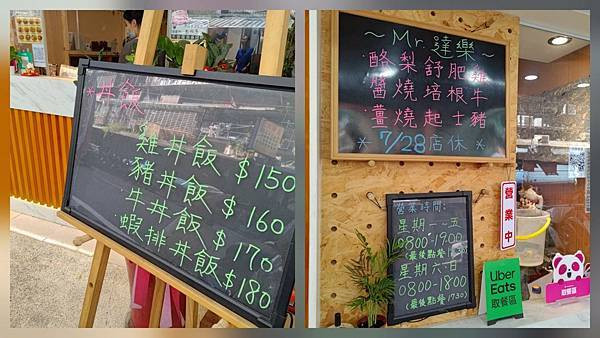 *丼飯
雞丼飯 $150
豬丼飯 $160
牛丼飯 $170
蝦排丼飯 $180
~Mr.達樂~
酪梨舒肥雞
醬燒培根牛
薑燒起士豬
*7/28店休*
營業時間:
星期一~五
0800-1900
(最後點餐
星期六.日
0800-1800
(最後點餐1730)
營業中
Uber
Eats
取餐區
取餐區